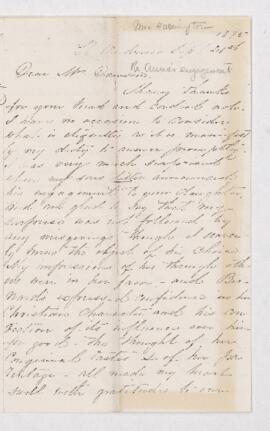 Mrs Harrington
1895
St Andrews Sept 21st
Re Annie's engagement
Dear Mrs
Many thanks
for your kind and cordial note.
I have no occasion to consider
what is etiquette when it is manifestly
my duty to answer promptly.
I was very much surprised
when my son's letter announced
his engagement to your daughter,
and am glad to say that my
surprise was not followed by
any misgiving - though I scarce-
ly knew the object of his choice
My impressions of her through oth-
ers were in her favor - and
expressed confidence in her
Christian character and his con-
viction of its influence over him
for good - the thought of her
congenial tastes & of her par-
entage - all made my heart
swell with gratitude to our